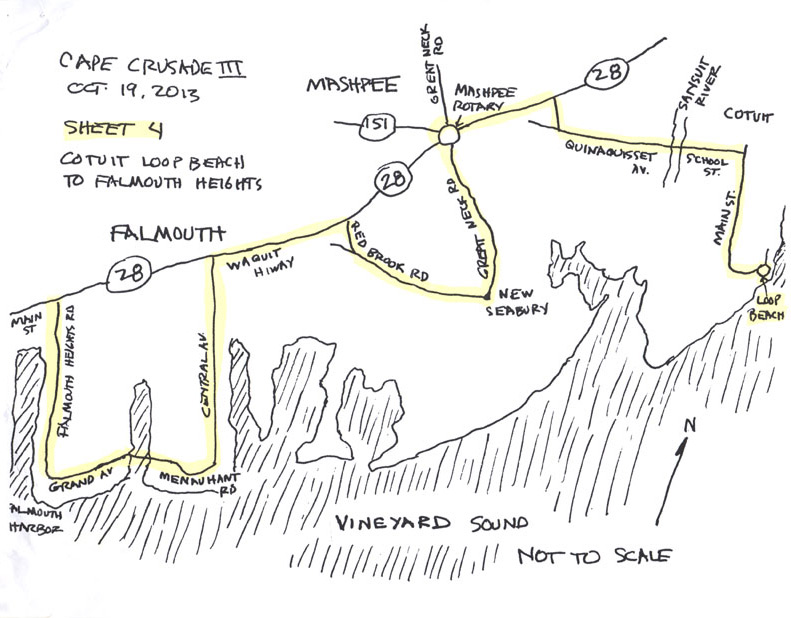 CAPE CRUSADE III
OCT. 19, 2013
SHEET 4
COTUIT LOOP BEACH
TO FALMOUTH HEIGHTS
MASHPEE
GREAT NECK
RD
MASHPEE
ROTARY
28
SANSUIT
RIVER
COTUIT
151
QUINAQUISSET
AV.
SCHOOL
ST.
28
GREAT NECK RD
MAIN ST.
FALMOUTH
RED BROOK RD
WAQUIT
HIWAY
28
NEW
SEABURY
LOOP
BEACH
MAIN
ST
FALMOUTH HEIGHTS RD
CENTRAL AV.
GRAND AV
MENAUHANT
RD
ALMOUTH
HARBOR
N
VINEYARD SOUND
NOT TO SCALE